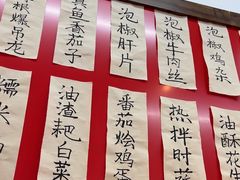 泡椒鸡杂
泡椒牛肉丝
泡椒肝片
鱼香茄子
根爆吊龙
油酥花生
热拌时蔬
番茄烩鸡蛋
油渣耙白菜
糯米